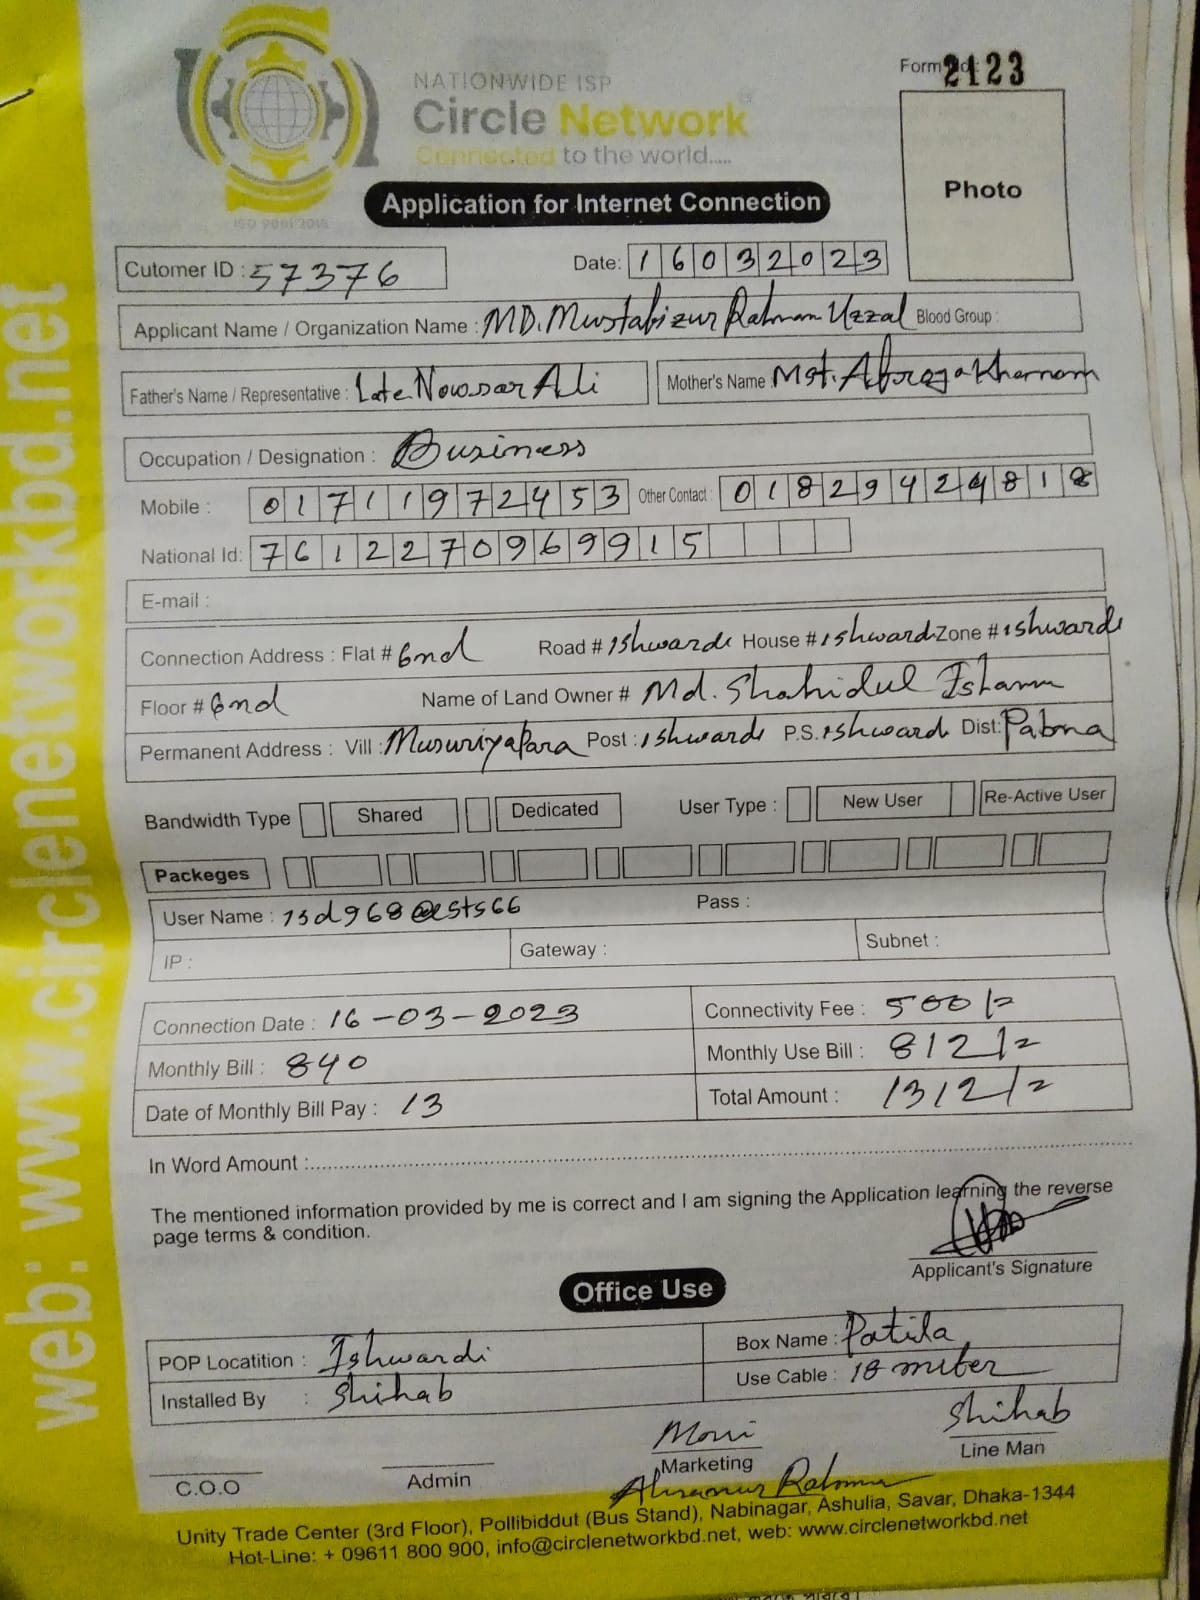 NATIONWIDE ISP
Circle Network
Connected to the world.....
ISO 9001:2015
Form 2123
Photo
Application for Internet Connection
Cutomer ID : 57376
Date: 16032023
Applicant Name / Organization Name : MD. Mustafizur Rahman Uzzal Blood Group :
Father's Name / Representative : Late Nowssar Ali Mother's Name Mst. Afroza Khannom
Occupation / Designation : Business
Mobile : 01711972453 Other Contact : 01829424818
National Id: 7612270969915
E-mail :
Connection Address : Flat # 6nd Road # Ishwardi House # ishwardi Zone # ishwardi
Floor # 6nd Name of Land Owner # Md. Shahidul Islam
Permanent Address : Vill : Musuriya Para Post : ishwardi P.S. ishwardi Dist: Pabna
Bandwidth Type Shared Dedicated User Type : New User Re-Active User
Packeges
User Name : 13d968@ests66 Pass :
IP : Gateway : Subnet :
Connection Date : 16-03-2023 Connectivity Fee : 500/=
Monthly Bill : 840 Monthly Use Bill : 812/=
Date of Monthly Bill Pay : 13 Total Amount : 1312/=
In Word Amount :
The mentioned information provided by me is correct and I am signing the Application learning the reverse
page terms & condition.
Applicant's Signature
Office Use
POP Locatition : Ishwardi Box Name : Patila
Installed By : Shihab Use Cable : 18 miter
Moni Shihab
C.O.O Admin Marketing Line Man
Rahman
Unity Trade Center (3rd Floor), Pollibiddut (Bus Stand), Nabinagar, Ashulia, Savar, Dhaka-1344
Hot-Line: + 09611 800 900, info@circlenetworkbd.net, web: www.circlenetworkbd.net
web: www.circlenetworkbd.net